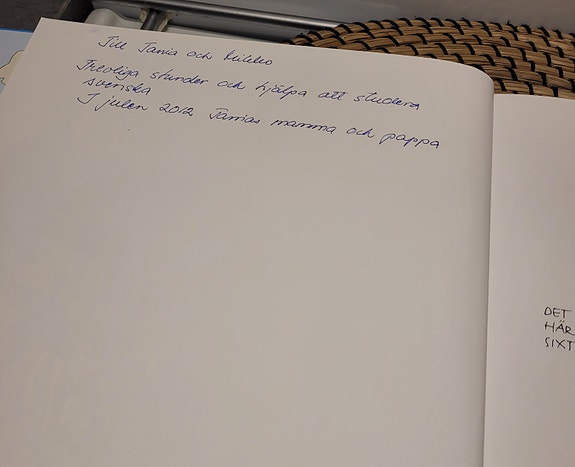 Till Tania och Mikko
Trevliga stunder och hjälpa att studera
svenska
I julen 2012 Tanias mamma och pappa
DET
HÄR
SIXT